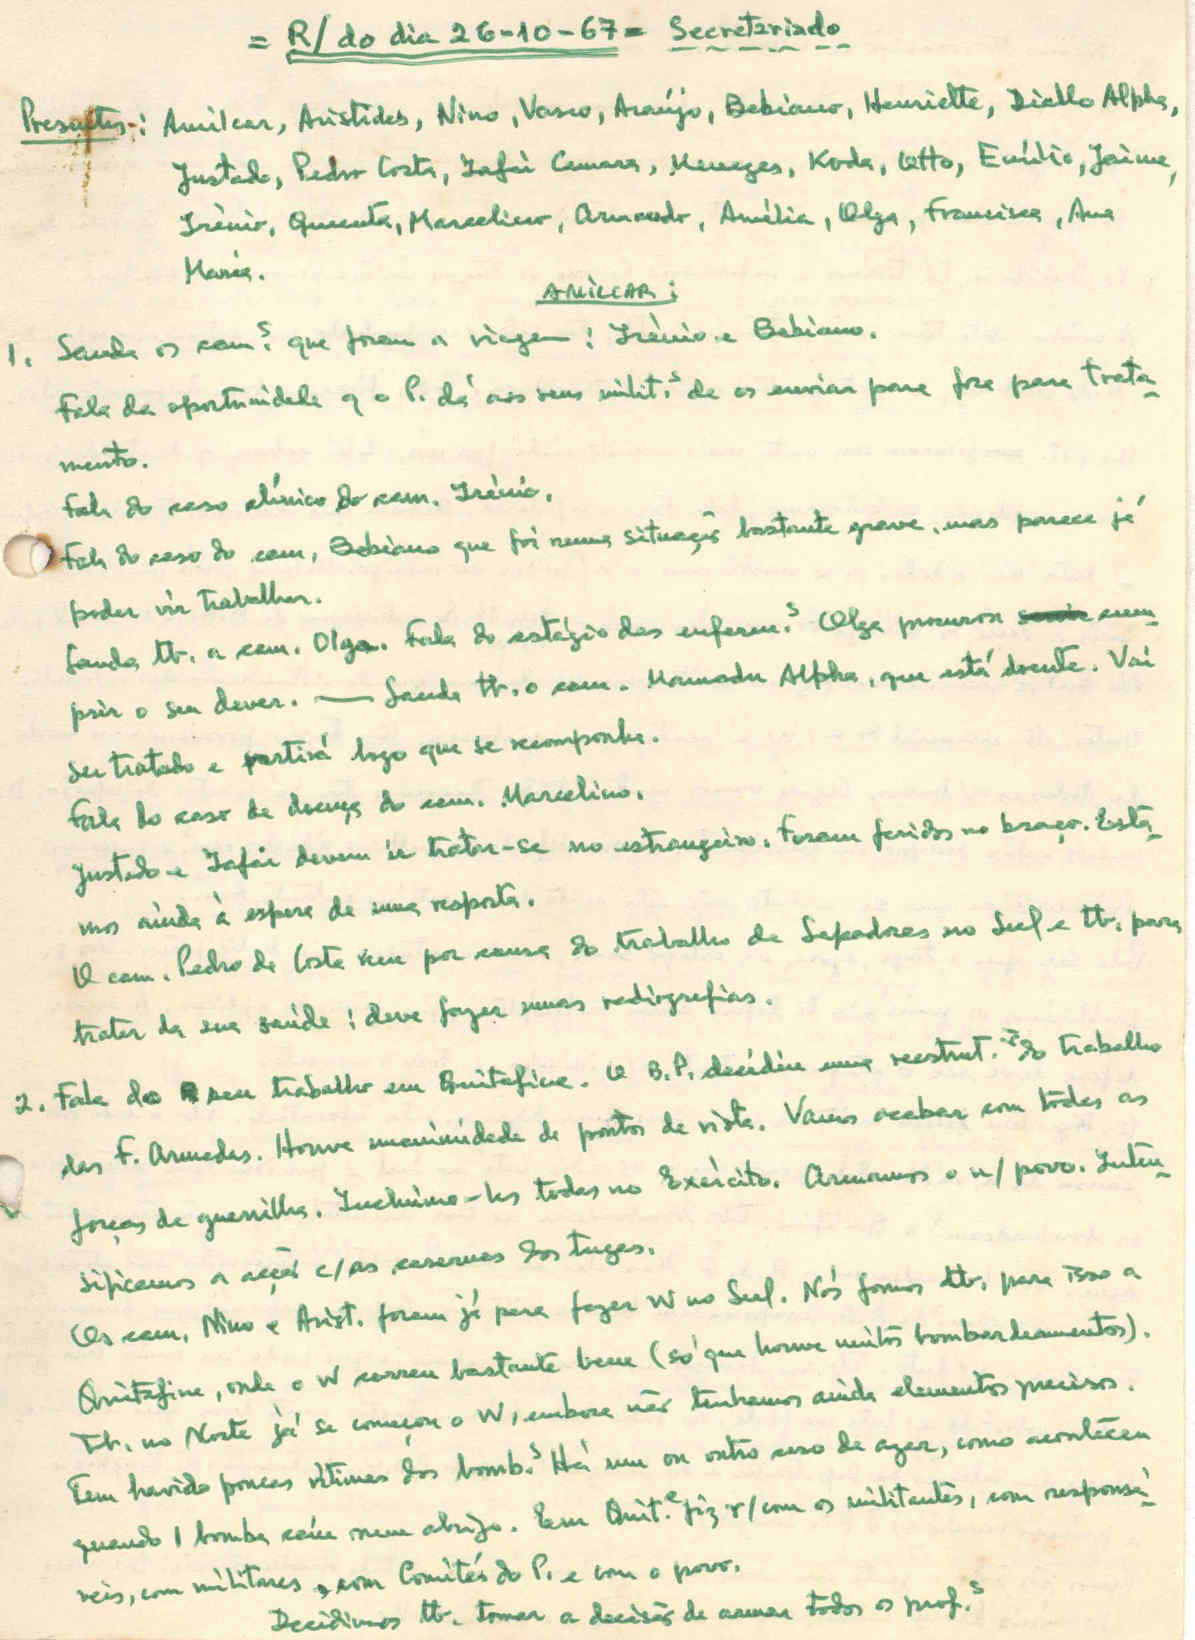 = R/ do dia 26-10-67 = Secretariado
Presentes: Amílcar, Aristides, Nino, Vasco, Araújo, Bebiano, Henriette, Diallo Alpha,
Justado, Pedro Costa, Iafai Camara, Menezes, Koda, Otto, Emílio, Jaime,
Irénio, Quecuta, Marcelino, Armando, Amélia, Olga, Francisca, Ana
Maria.
AMILCAR:
1. Saúda os cam.s que foram a viagem: Irénio e Bebiano.
Fala da oportunidade q o P. dá aos seus milit.s de os enviar para fora para trata-
mento.
Fala do caso clínico do cam. Irénio.
Fala do caso do cam. Bebiano que foi numa situação bastante grave, mas parece já
poder vir trabalhar.
Saúda tb. a cam. Olga. Fala do estágio das enferm.s Olga procurou cum-
prir o seu dever. — Saúda tb. o cam. Mamadu Alpha, que está doente. Vai
ser tratado e partirá logo que se recomponha.
Fala do caso de doença do cam. Marcelino.
Justado e Iafai devem ir tratar-se no estrangeiro. Foram feridos no braço. Esta-
mos ainda à espera de uma resposta.
O cam. Pedro da Costa veio por causa do trabalho de Sapadores no Sul e tb. para
tratar da sua saúde: deve fazer umas radiografias.
2. Fala do seu trabalho em Quitafine. O B.P. decidiu uma reestrut.ão do trabalho
das F. Armadas. Houve unanimidade de pontos de vista. Vamos acabar com todas as
forças de guerrilha. Incluímo-las todas no Exército. Armamos o n/ povo. Inten-
sificamos a acção c/ as casernas dos tugas.
Os cam. Nino e Arist. foram já para fazer W no Sul. Nós fomos tb. para isso a
Quitafine, onde o W correu bastante bem (só que houve muitos bombardeamentos).
Tb. no Norte já se começou o W, embora não tenhamos ainda elementos precisos.
Tem havido poucas vítimas dos bomb.s Há um ou outro caso de azar, como aconteceu
quando 1 bomba caiu num abrigo. Em Quit.e fiz r/ com os militantes, com responsá-
veis, com militares, com Comités do P. e com o povo.
Decidimos tb. tomar a decisão de armar todos os prof.s